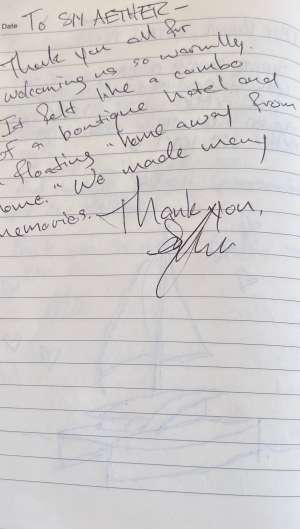 Date To S/Y AETHER -
Thank you all for
welcoming us so warmly.
It felt like a combo
of a boutique hotel and
a floating "home away from
home." We made many
memories. Thank you,